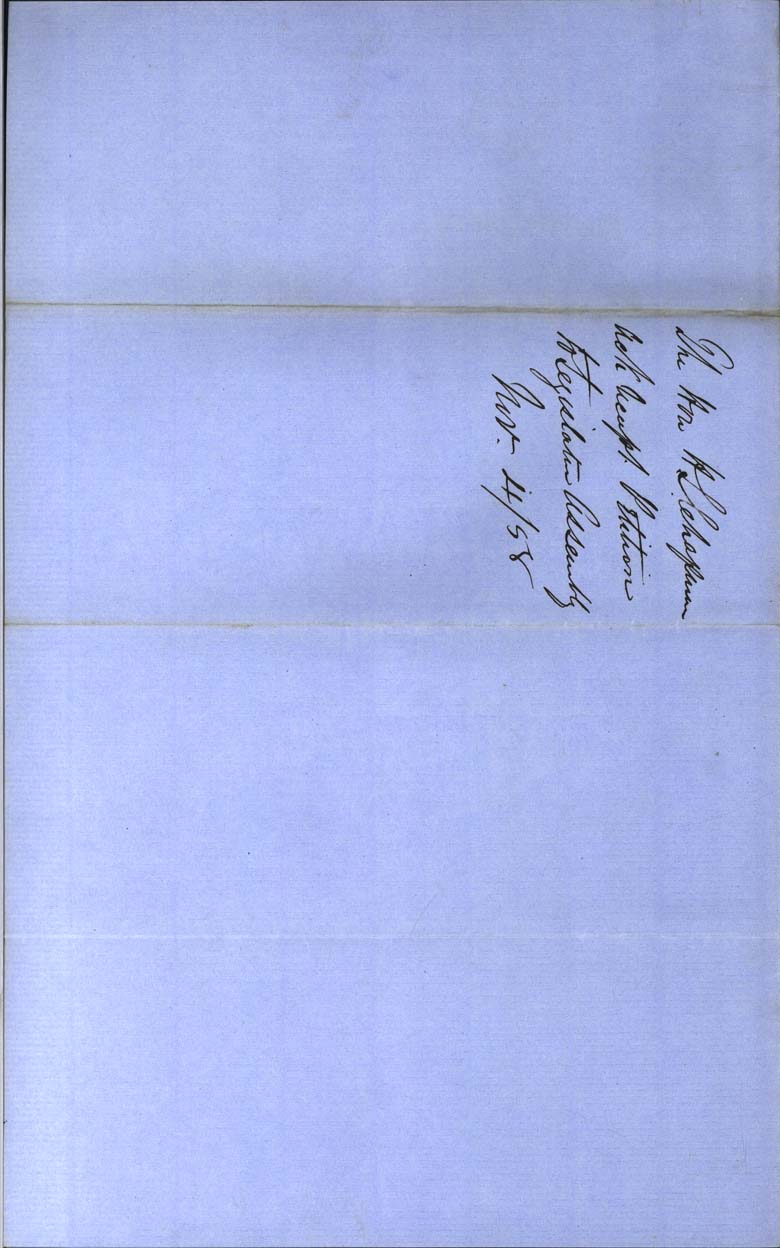 The Hon H S Chapman
Petition
to Legislative Assembly
Nov. 4/58